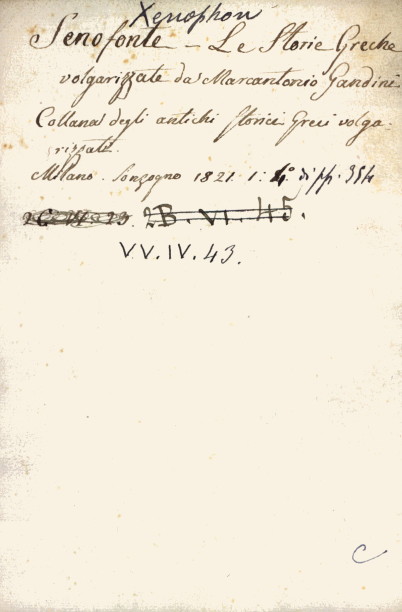 Xenophon
Senofonte - Le Storie Greche
volgarizzate da Marcantonio Gandini
Collana degli antichi storici Greci volga-
rizzati.
Milano. Sonzogno 1821. 1: 4° di pp. 354
23. 2B. VI. 45.
V.V. IV. 43.
C